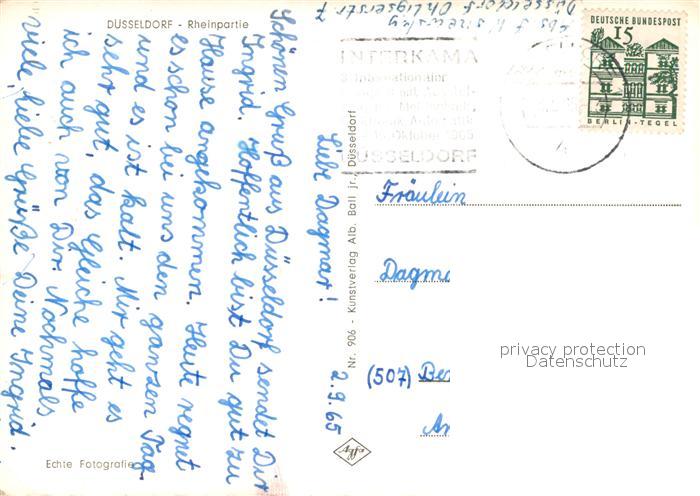 DÜSSELDORF - Rheinpartie
Liebe Dagmar!
2.9.65
Schönen Gruß aus Düsseldorf sendet Dir
Ingrid. Hoffentlich bist Du gut zu
Hause angekommen. Heute regnet
es schon bei uns den ganzen Tag
und es ist kalt. Mir geht es
sehr gut, das Gleiche hoffe
ich auch von Dir. Nochmals
viele, liebe Grüße Deine Ingrid.
Echte Fotografie
Nr. 906 - Kunstverlag Alb. Ball jr., Düsseldorf
Agfa
Düsseldorf Ohligserstr 7
INTERKAMA
Oktober 1965
DÜSSELDORF
4
DEUTSCHE BUNDESPOST
15
BERLIN-TEGEL
Fräulein
Dagma
(507) Be
privacy protection
Datenschutz